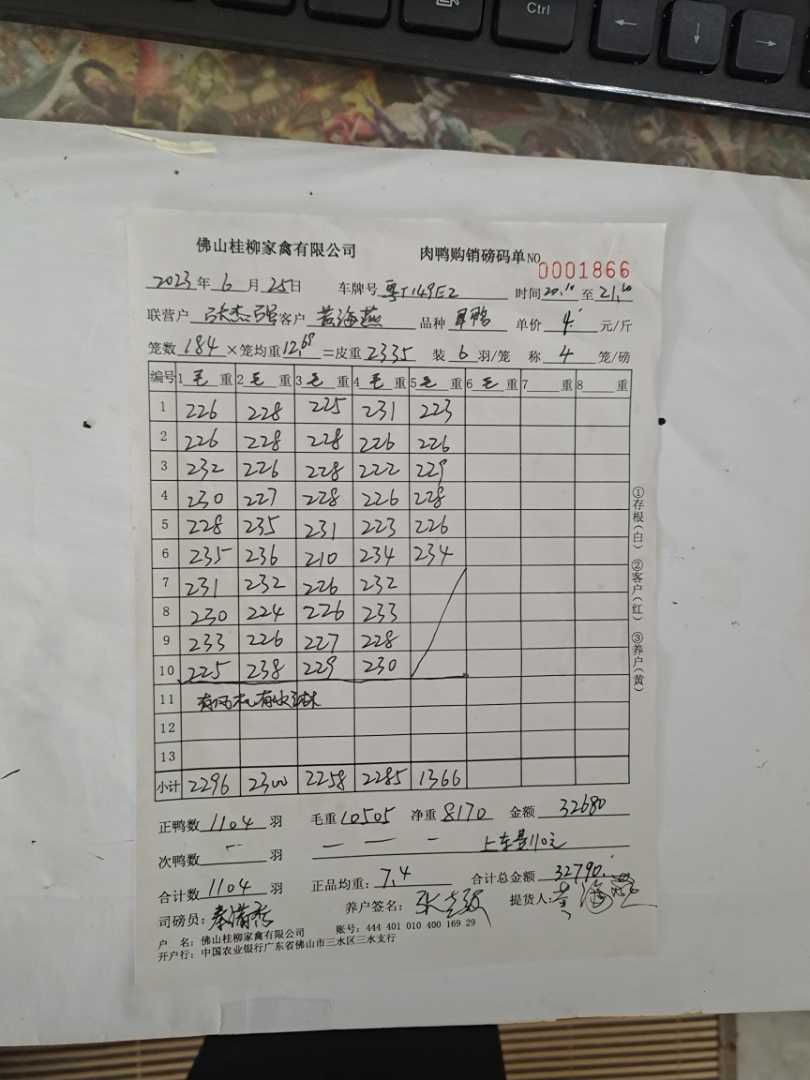 Ctrl
佛山桂柳家禽有限公司 肉鸭购销磅码单 NO 0001866
2023年6月25日 车牌号 粤T149E2 时间20:10至21:10
联营户 张杰强 客户 黄海燕 品种 草鸭 单价 4. 元/斤
笼数 184 ×笼均重 12.69 =皮重 2335 装 6 羽/笼 称 4 笼/磅
编号 1 毛 重 2 毛 重 3 毛 重 4 毛 重 5 毛 重 6 毛 重 7 重 8 重
1 226 228 225 231 223
2 226 228 228 226 226
3 232 226 228 222 229
4 230 227 228 226 228
5 228 235 231 223 226
6 235 236 210 234 234
7 231 232 226 232
8 230 224 226 233
9 233 226 227 228
10 225 238 229 230
11 有风机有水
12
13
小计 2296 2300 2258 2285 1366
①存根(白) ②客户(红) ③养户(黄)
正鸭数 1104 羽 毛重 10505 净重 8170 金额 32680
次鸭数 – 羽 — — - 上车费110元
合计数 1104 羽 正品均重: 7.4 合计总金额 32790.
司磅员: 养户签名: 提货人:
户 名: 佛山桂柳家禽有限公司 账号: 444 401 010 400 169 29
开户行: 中国农业银行广东省佛山市三水区三水支行